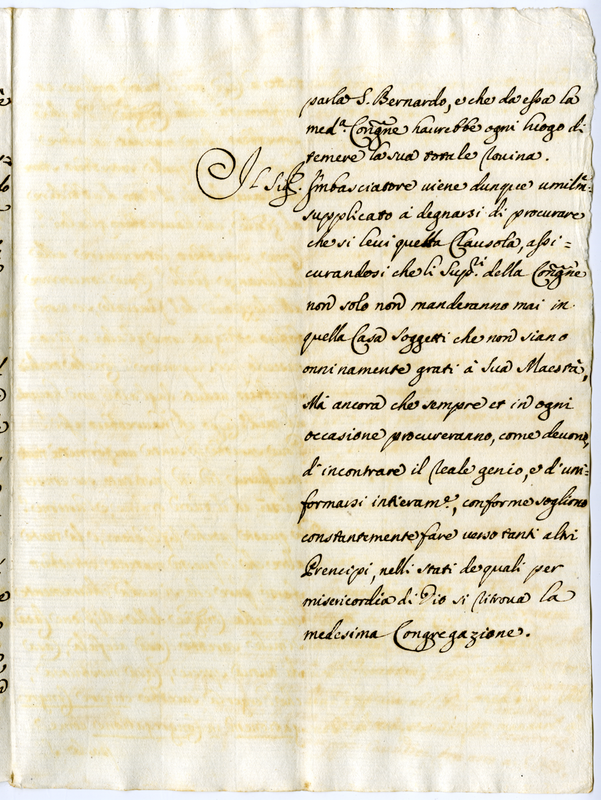 parla S. Bernardo, e che da essa la
med.ª Congñe haurebbe ogni luogo di
temere la sua totale rovina.
Il Sig.r Imbasciatore viene dunque umilm.=
supplicato à degnarsi di procurare
che si levi quella Clausola, assi=
curandosi che li Sup.ri della Congñe
non solo non manderanno mai in
quella Casa Soggetti che non siano
onninamente grati à Sua Maestà,
Mà ancora che sempre et in ogni
occasione procureranno, come devono,
d'incontrare il reale genio, e d'uni=
formarsi intieram.e, conforme sogliono
constantemente fare verso tanti altri
Prencipi, nelli Stati de quali per
misericordia di Dio si ritrova la
medesima Congregazione.